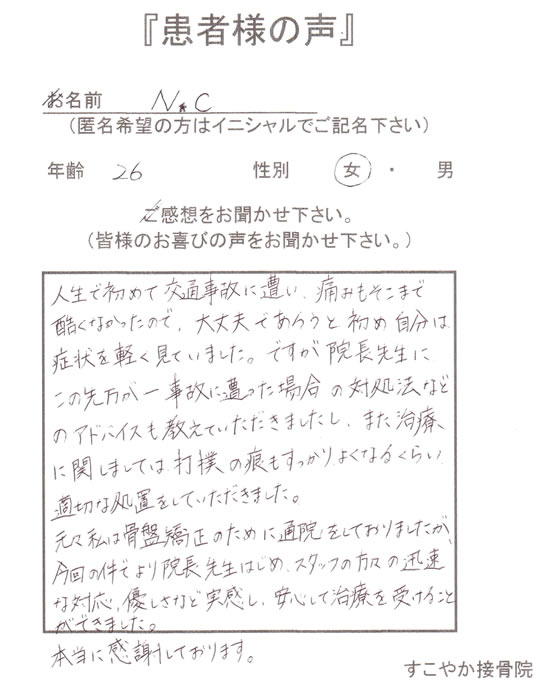 『患者様の声』
お名前 N.C
(匿名希望の方はイニシャルでご記名下さい)
年齢 26 性別 女 ・ 男
ご感想をお聞かせ下さい。
(皆様のお喜びの声をお聞かせ下さい。)
人生で初めて交通事故に遭い、痛みもそこまで
酷くなかったので、大丈夫であろうと初め自分は
症状を軽く見ていました。ですが院長先生に
この先万が一事故に遭った場合の対処法など
のアドバイスも教えていただきましたし、また治療
に関しましては打撲の痕もすっかりよくなるくらい
適切な処置をしていただきました。
元々私は骨盤矯正のために通院をしておりましたが、
今回の件でより院長先生はじめ、スタッフの方々の迅速
な対応、優しさなど実感し、安心して治療を受けること
ができました。
本当に感謝しております。
すこやか接骨院